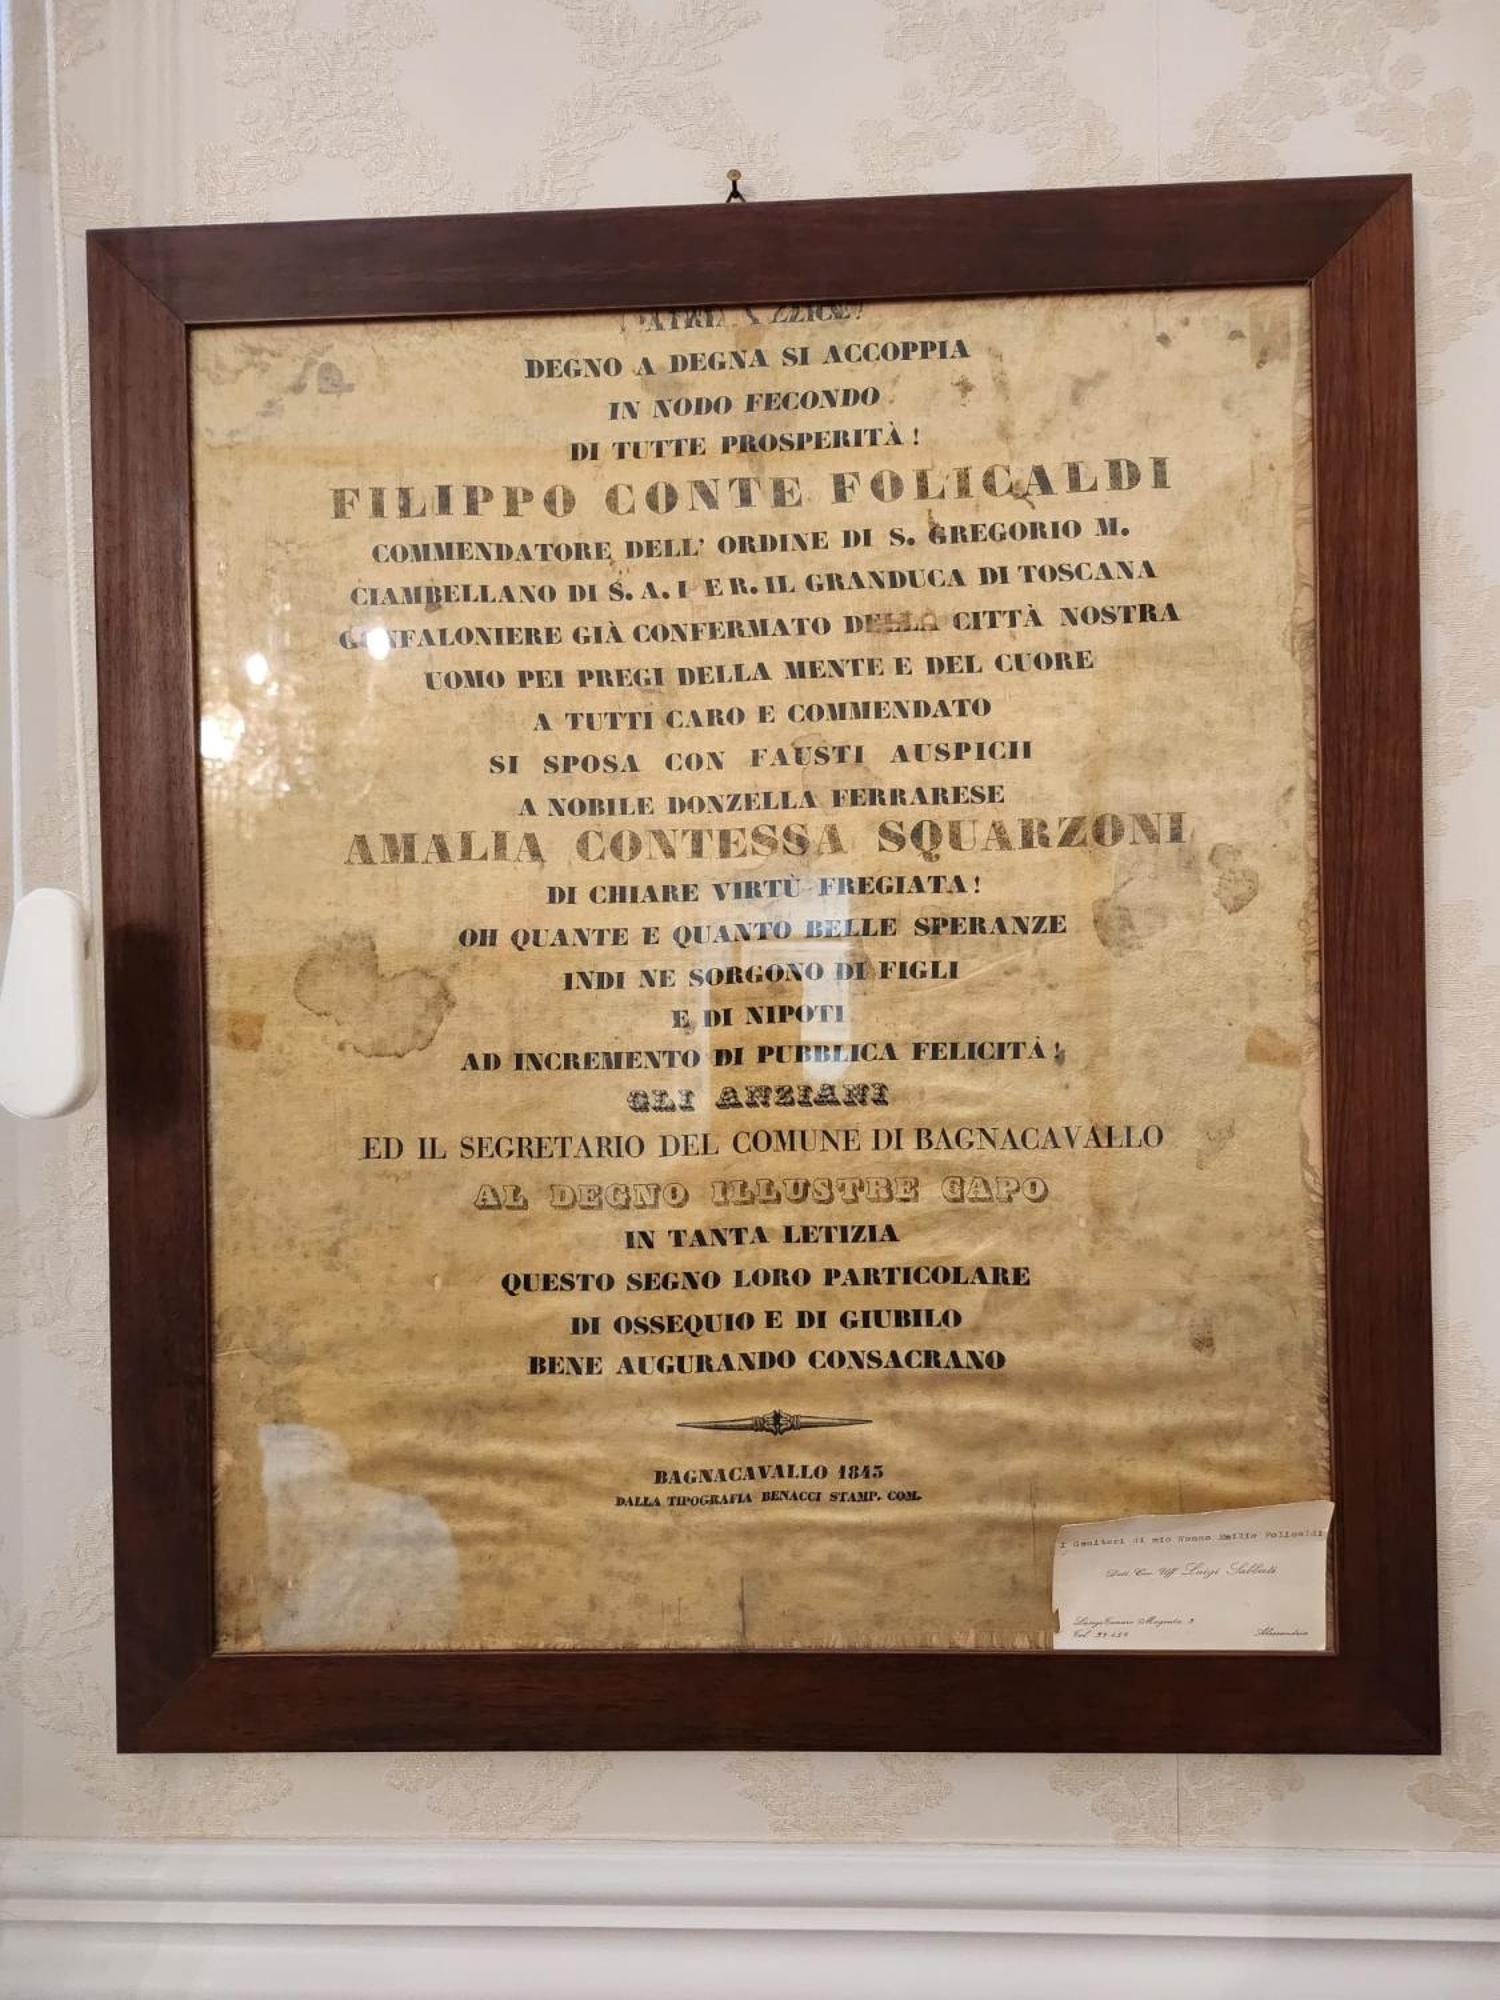 DEGNO A DEGNA SI ACCOPPIA
IN NODO FECONDO
DI TUTTE PROSPERITÀ!
FILIPPO CONTE FOLICALDI
COMMENDATORE DELL' ORDINE DI S. GREGORIO M.
CIAMBELLANO DI S. A. I E R. IL GRANDUCA DI TOSCANA
GONFALONIERE GIÀ CONFERMATO DELLA CITTÀ NOSTRA
UOMO PEI PREGI DELLA MENTE E DEL CUORE
A TUTTI CARO E COMMENDATO
SI SPOSA CON FAUSTI AUSPICII
A NOBILE DONZELLA FERRARESE
AMALIA CONTESSA SQUARZONI
DI CHIARE VIRTÙ FREGIATA!
OH QUANTE E QUANTO BELLE SPERANZE
INDI NE SORGONO DI FIGLI
E DI NIPOTI
AD INCREMENTO DI PUBBLICA FELICITÀ!
GLI ANZIANI
ED IL SEGRETARIO DEL COMUNE DI BAGNACAVALLO
AL DEGNO ILLUSTRE CAPO
IN TANTA LETIZIA
QUESTO SEGNO LORO PARTICOLARE
DI OSSEQUIO E DI GIUBILO
BENE AUGURANDO CONSACRANO
BAGNACAVALLO 1843
DALLA TIPOGRAFIA BENACCI STAMP. COM.
I Genitori di mio Nonno Emilio Folicaldi
Dott. Cav. Uff. Luigi Sabbati
Magenta
Tel.
Alessandria